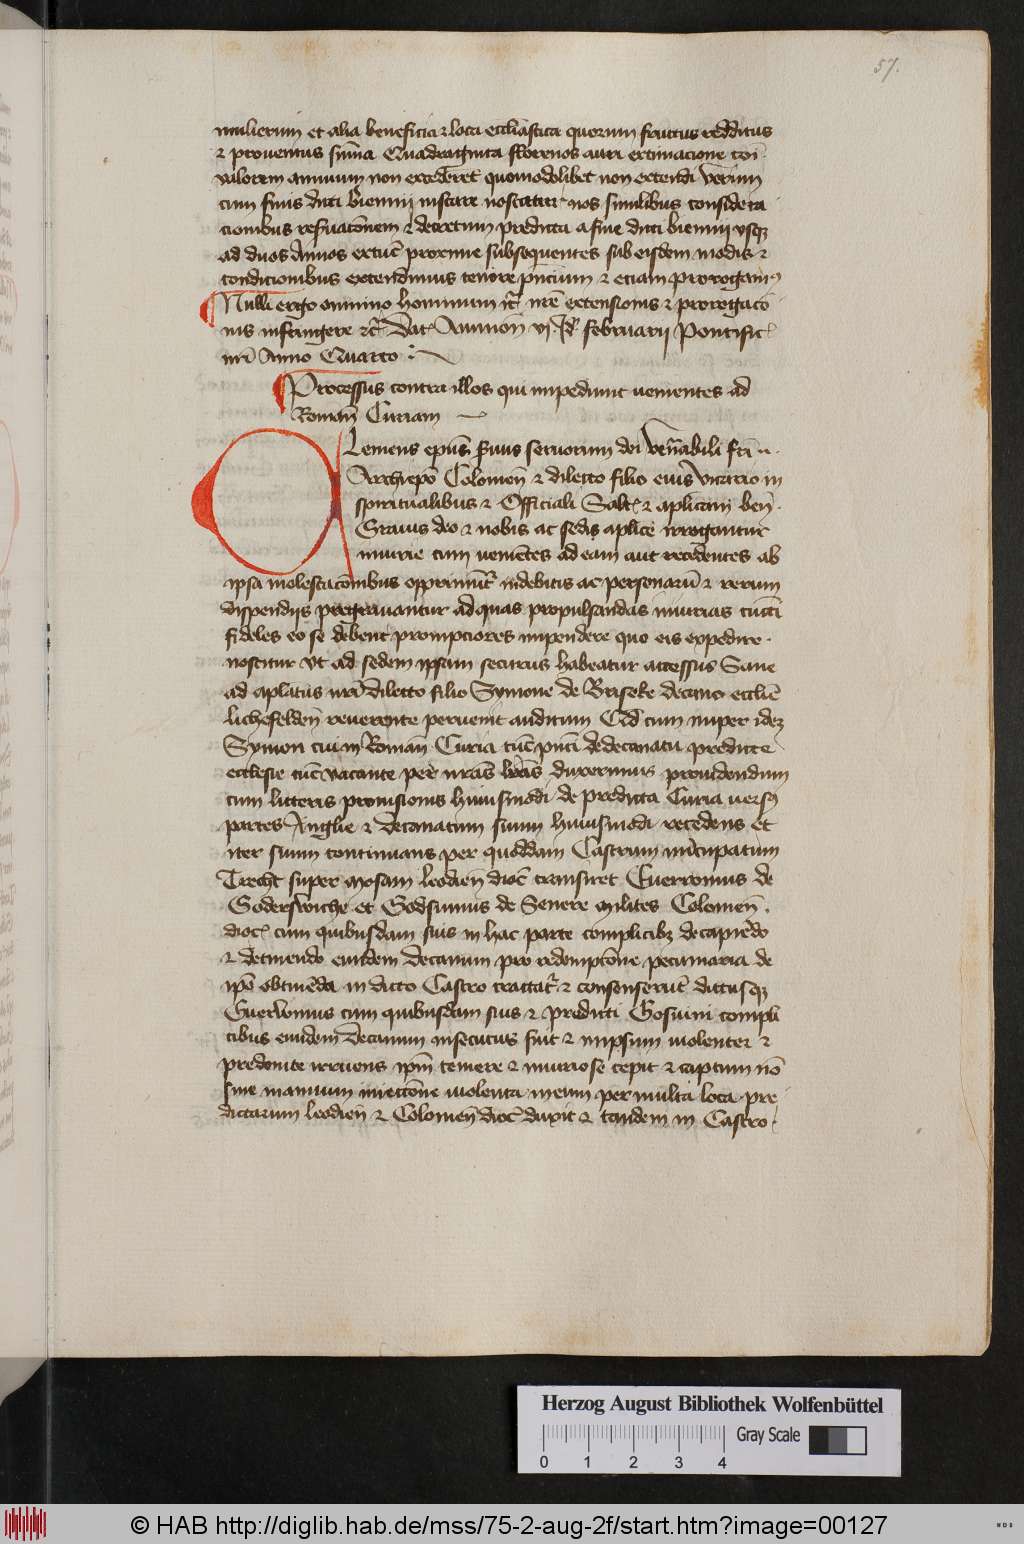 57.
mulierum et alia beneficia ⁊ loca eccliastica quorum fructus redditus
⁊ proventus suma Quadraginta florenos auri extimacione coi
valorem annuum non excederet quomodolibet non extendi Verum
cum finis dicti biennii instare noscatur nos similibus considera
cionibus reservatonem ⁊ decretum predicta a fine dicti biennii usq
ad duos Annos extunc proxime subsequentes sub eisdem modis ⁊
condicionibus extendimus tenore pncium ⁊ etiam prorogam9
Nulli ergo omnino hominum ⁊c nre extensionis ⁊ prorogaco
nis infringere ⁊c Dat Avinion vj Id februarij Pontific
nri Anno Quarto
Processus contra illos qui impediunt venientes ad
Roman Curiam
Clemens epus servus servorum dei Venabili fri
Archiepo Colonien ⁊ dilecto filio eius Vicario in
spiritualibus ⁊ Officiali Salt ⁊ aplicam ben
Gravis deo ⁊ nobis ac sedis aplice irrogantur
iniurie cum venietes ad eam aut recedentes ab
ipsa molestacoibus opprimut indebitis ac personaru ⁊ rerum
dispendijs pregravantur ad quas propulsandas iniurias cucti
fideles eo se debent prompciores impendere quo eis expedire
noscitur Vt ad sedem ipsam securus habeatur accessus Sane
ad aplatus nri dilecto filio Symone de Briseke decano ecclie
lichefelden reverente pervenit auditum Qd cum nuper idez
Symon cui in Roman Curia tuc pnti de decanatu predicte
ecclesie tuc vacante per nras lras duxerimus providendum
cum litteris provisionis huiusmodi de predicta Curia vers9
partes Anglie ⁊ decanatum suum huiusmodi recedens et
iter suum continuans per quoddam Castrum nucupatum
Trecht super mosam leodien dioc transiret Everwinus de
Goderswiche et Godswinus de Senere milites Colonien
dioc cum quibusdam suis in hac parte complicibz de capiedo
⁊ detinendo eundem decanum pro redemptone pecuniaria de
ipo obtineda in dicto Castro tractat ⁊ consenserut dictusq
Everwinus cum quibusdam suis ⁊ predicti Goswini compli
cibus eundem Decanum insecutus fuit ⁊ in ipsum violenter ⁊
predonice irruens ipm temere ⁊ iniuriose cepit ⁊ captum no
sine manuum iniectone violenta in eum per multa loca pre
dictarum leodien ⁊ Colonien dioc duxit ⁊ tandem in Castro
Herzog August Bibliothek Wolfenbüttel
0 1 2 3 4 Gray Scale
© HAB http://diglib.hab.de/mss/75-2-aug-2f/start.htm?image=00127